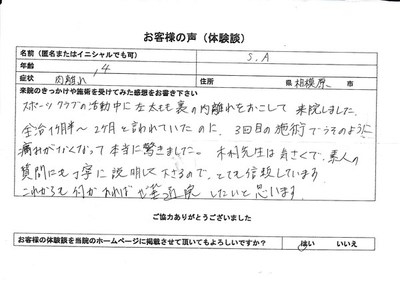 お客様の声（体験談）
名前（匿名またはイニシャルでも可） S.A
年齢 14
症状 肉離れ 住所 県 相模原 市
来院のきっかけや施術を受けてみた感想をお書き下さい
スポーツクラブの活動中に左太もも裏の肉離れをおこして来院しました。
全治1ヶ月半〜2ヶ月と言われていたのに、3回目の施術でうそのように
痛みがなくなって本当に驚きました。 先生は気さくで、素人の
質問にも丁寧に説明して下さるので、とても信頼しています。
これからも何かあれば是非通院したいと思います。
ご協力ありがとうございました
お客様の体験談を当院のホームページに掲載させて頂いてもよろしいですか？ はい いいえ